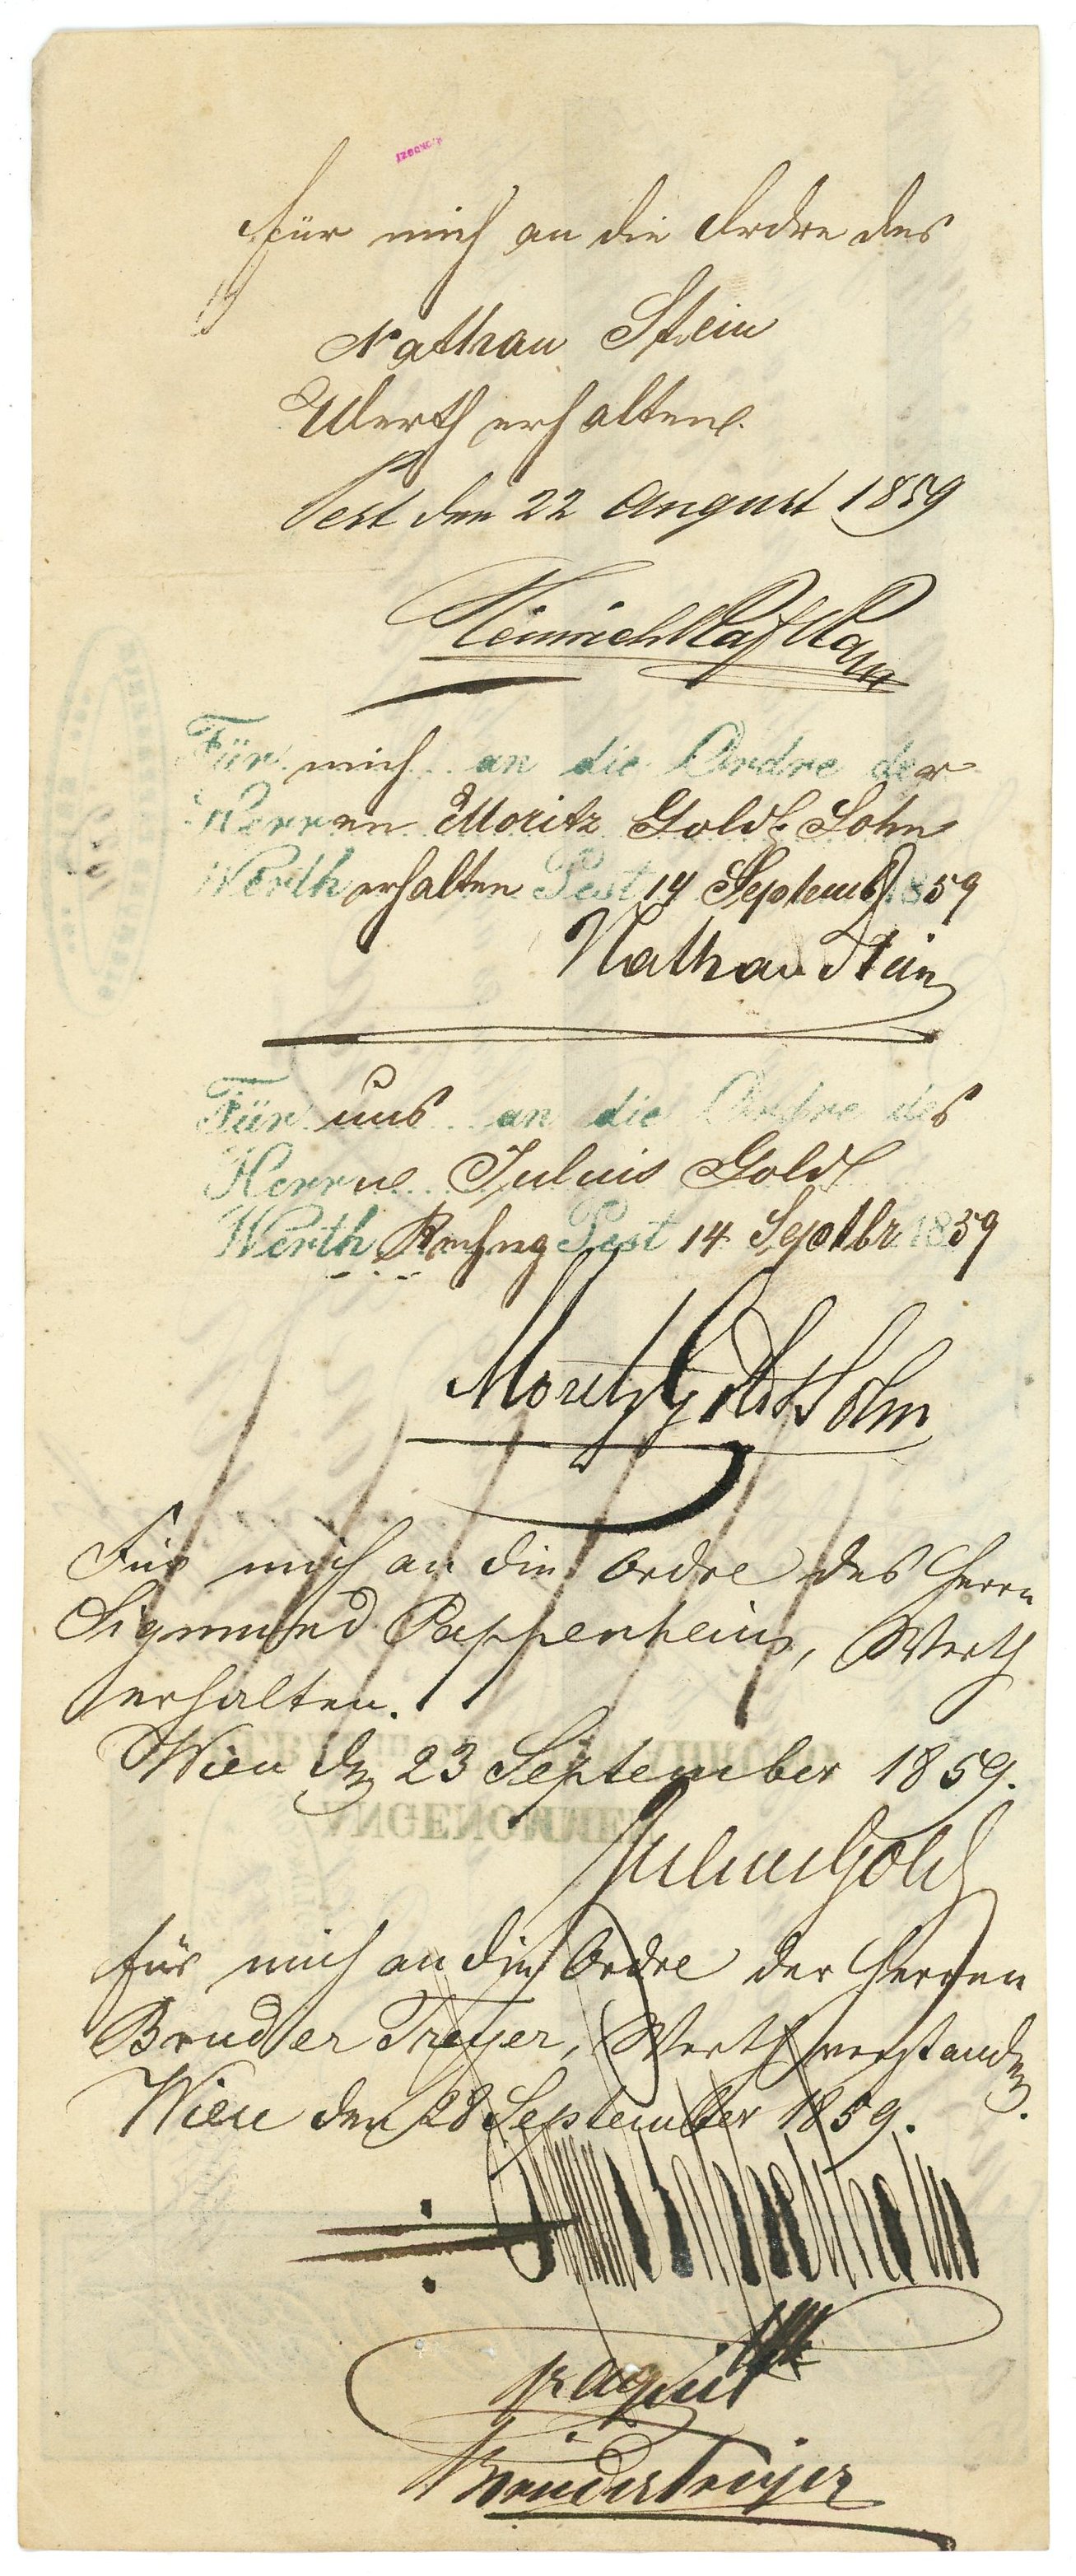 für mich an die Ordre des
Nathan Stein
Werth erhalten.
Pest den 22 August 1859
Heinrich
Für mich an die Ordre der
Herren Moritz Gold & Sohn
Werth erhalten Pest 14 Septemb 1859
Nathan Stein
Für uns an die Ordre des
Herrn Julius Gold
Werth Rechng Pest 14 Septbr 1859
Moritz Gold & Sohn
Für mich an die Ordre des Herrn
Sigmund Pappenheim, Werth
erhalten.
Wien den 23 September 1859.
Julius Gold
für mich an die Ordre der Herren
Bruder Treyer, Werth verstanden.
Wien den 28 September 1859.
Pappenheim
pr acquit
Brüder Treyer
ANGENOMMEN